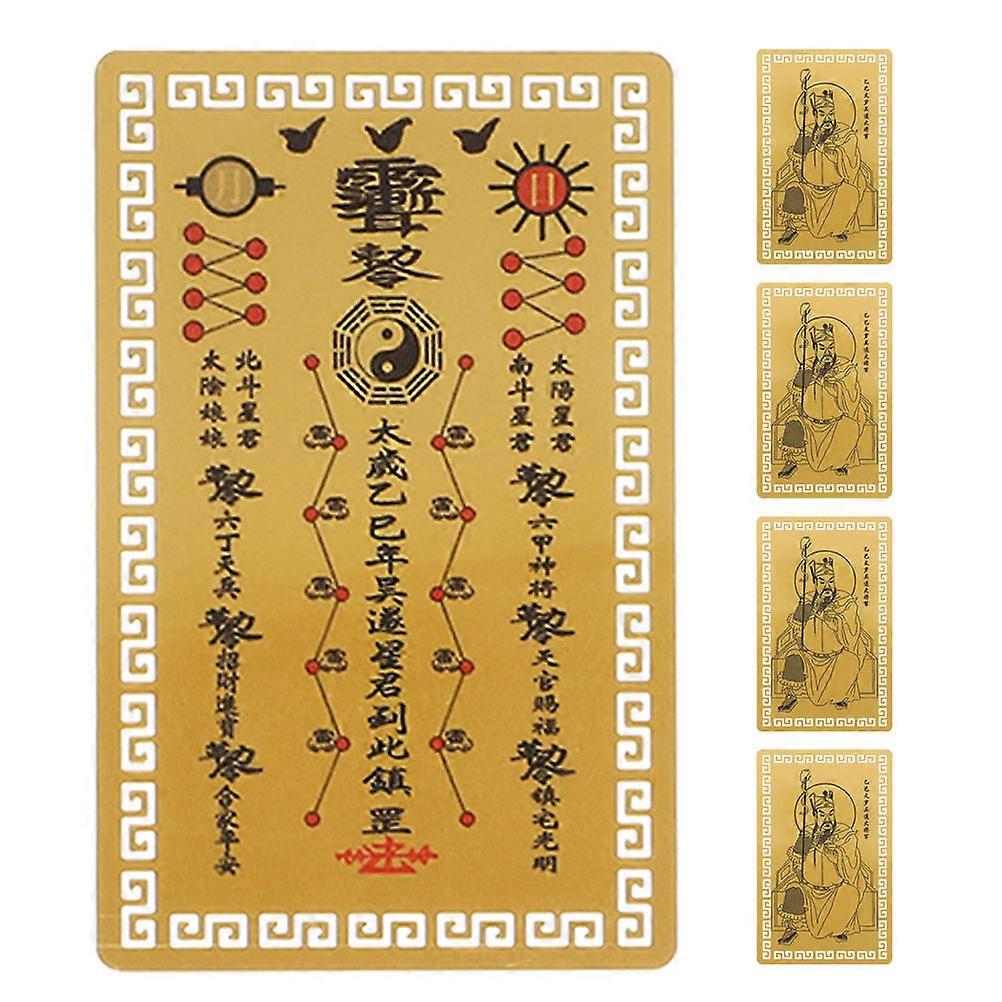 日
太陽星君
南斗星君
六甲神將
天官賜福
鎮宅光明
太歲乙巳年吳遂星君到此鎮罡
月
北斗星君
太陰娘娘
六丁天兵
招財進寶
合家平安